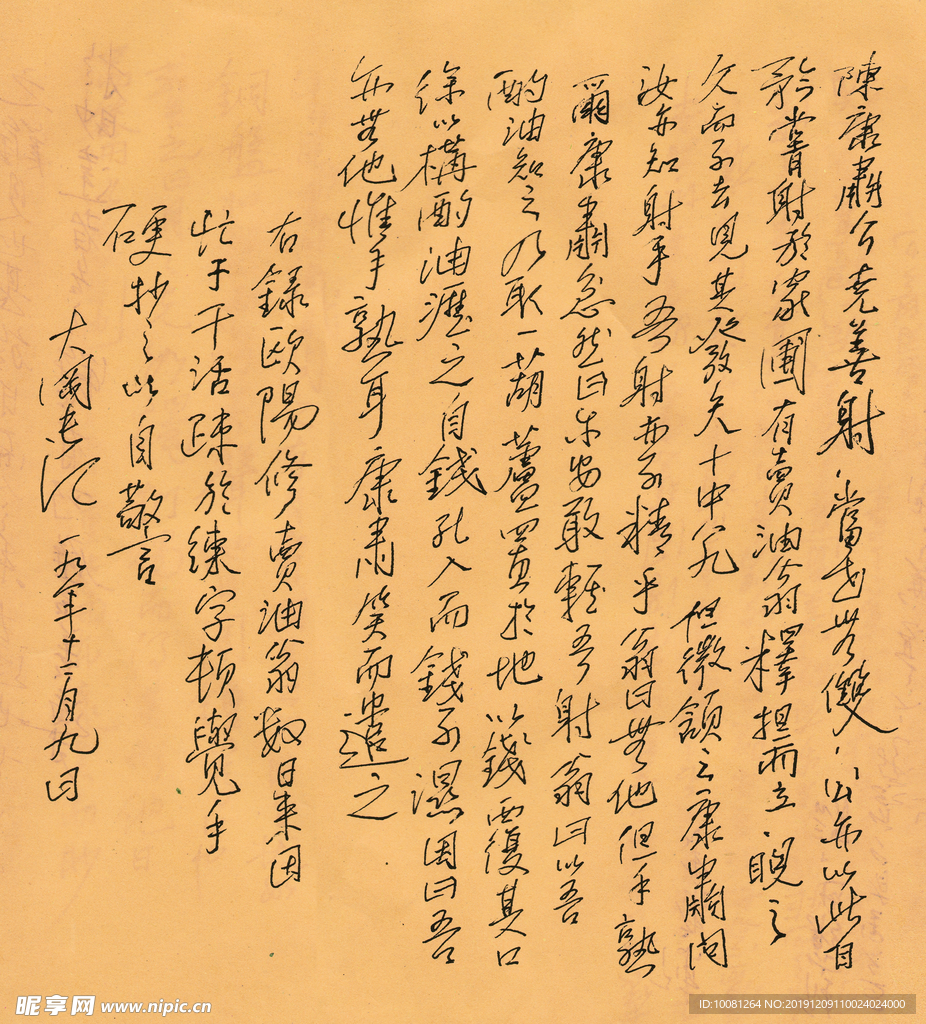 陳康肅公堯善射當世無雙公亦以此自
矜嘗射於家圃有賣油翁釋担而立睨之
久而不去見其發矢十中八九但微頷之康肅問
汝亦知射乎吾射亦不精乎翁曰無他但手熟
爾康肅忿然曰尔安敢輕吾射翁曰以吾
酌油知之乃取一葫蘆置於地以錢覆其口
徐以构酌油瀝之自錢孔入而錢不濕因曰吾
亦無他惟手熟耳康肅笑而遣之
右錄歐陽修賣油翁数日来因
忙于干活疎於練字頓覺手
硬抄之以自警
大 一九 年十二月九日
昵享网 www.nipic.cn
ID:10081264 NO:20191209110024024000